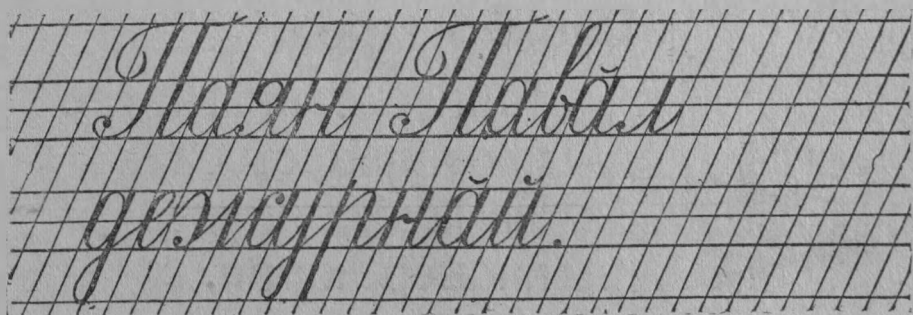 Паян Павӑл
дежурнӑй.